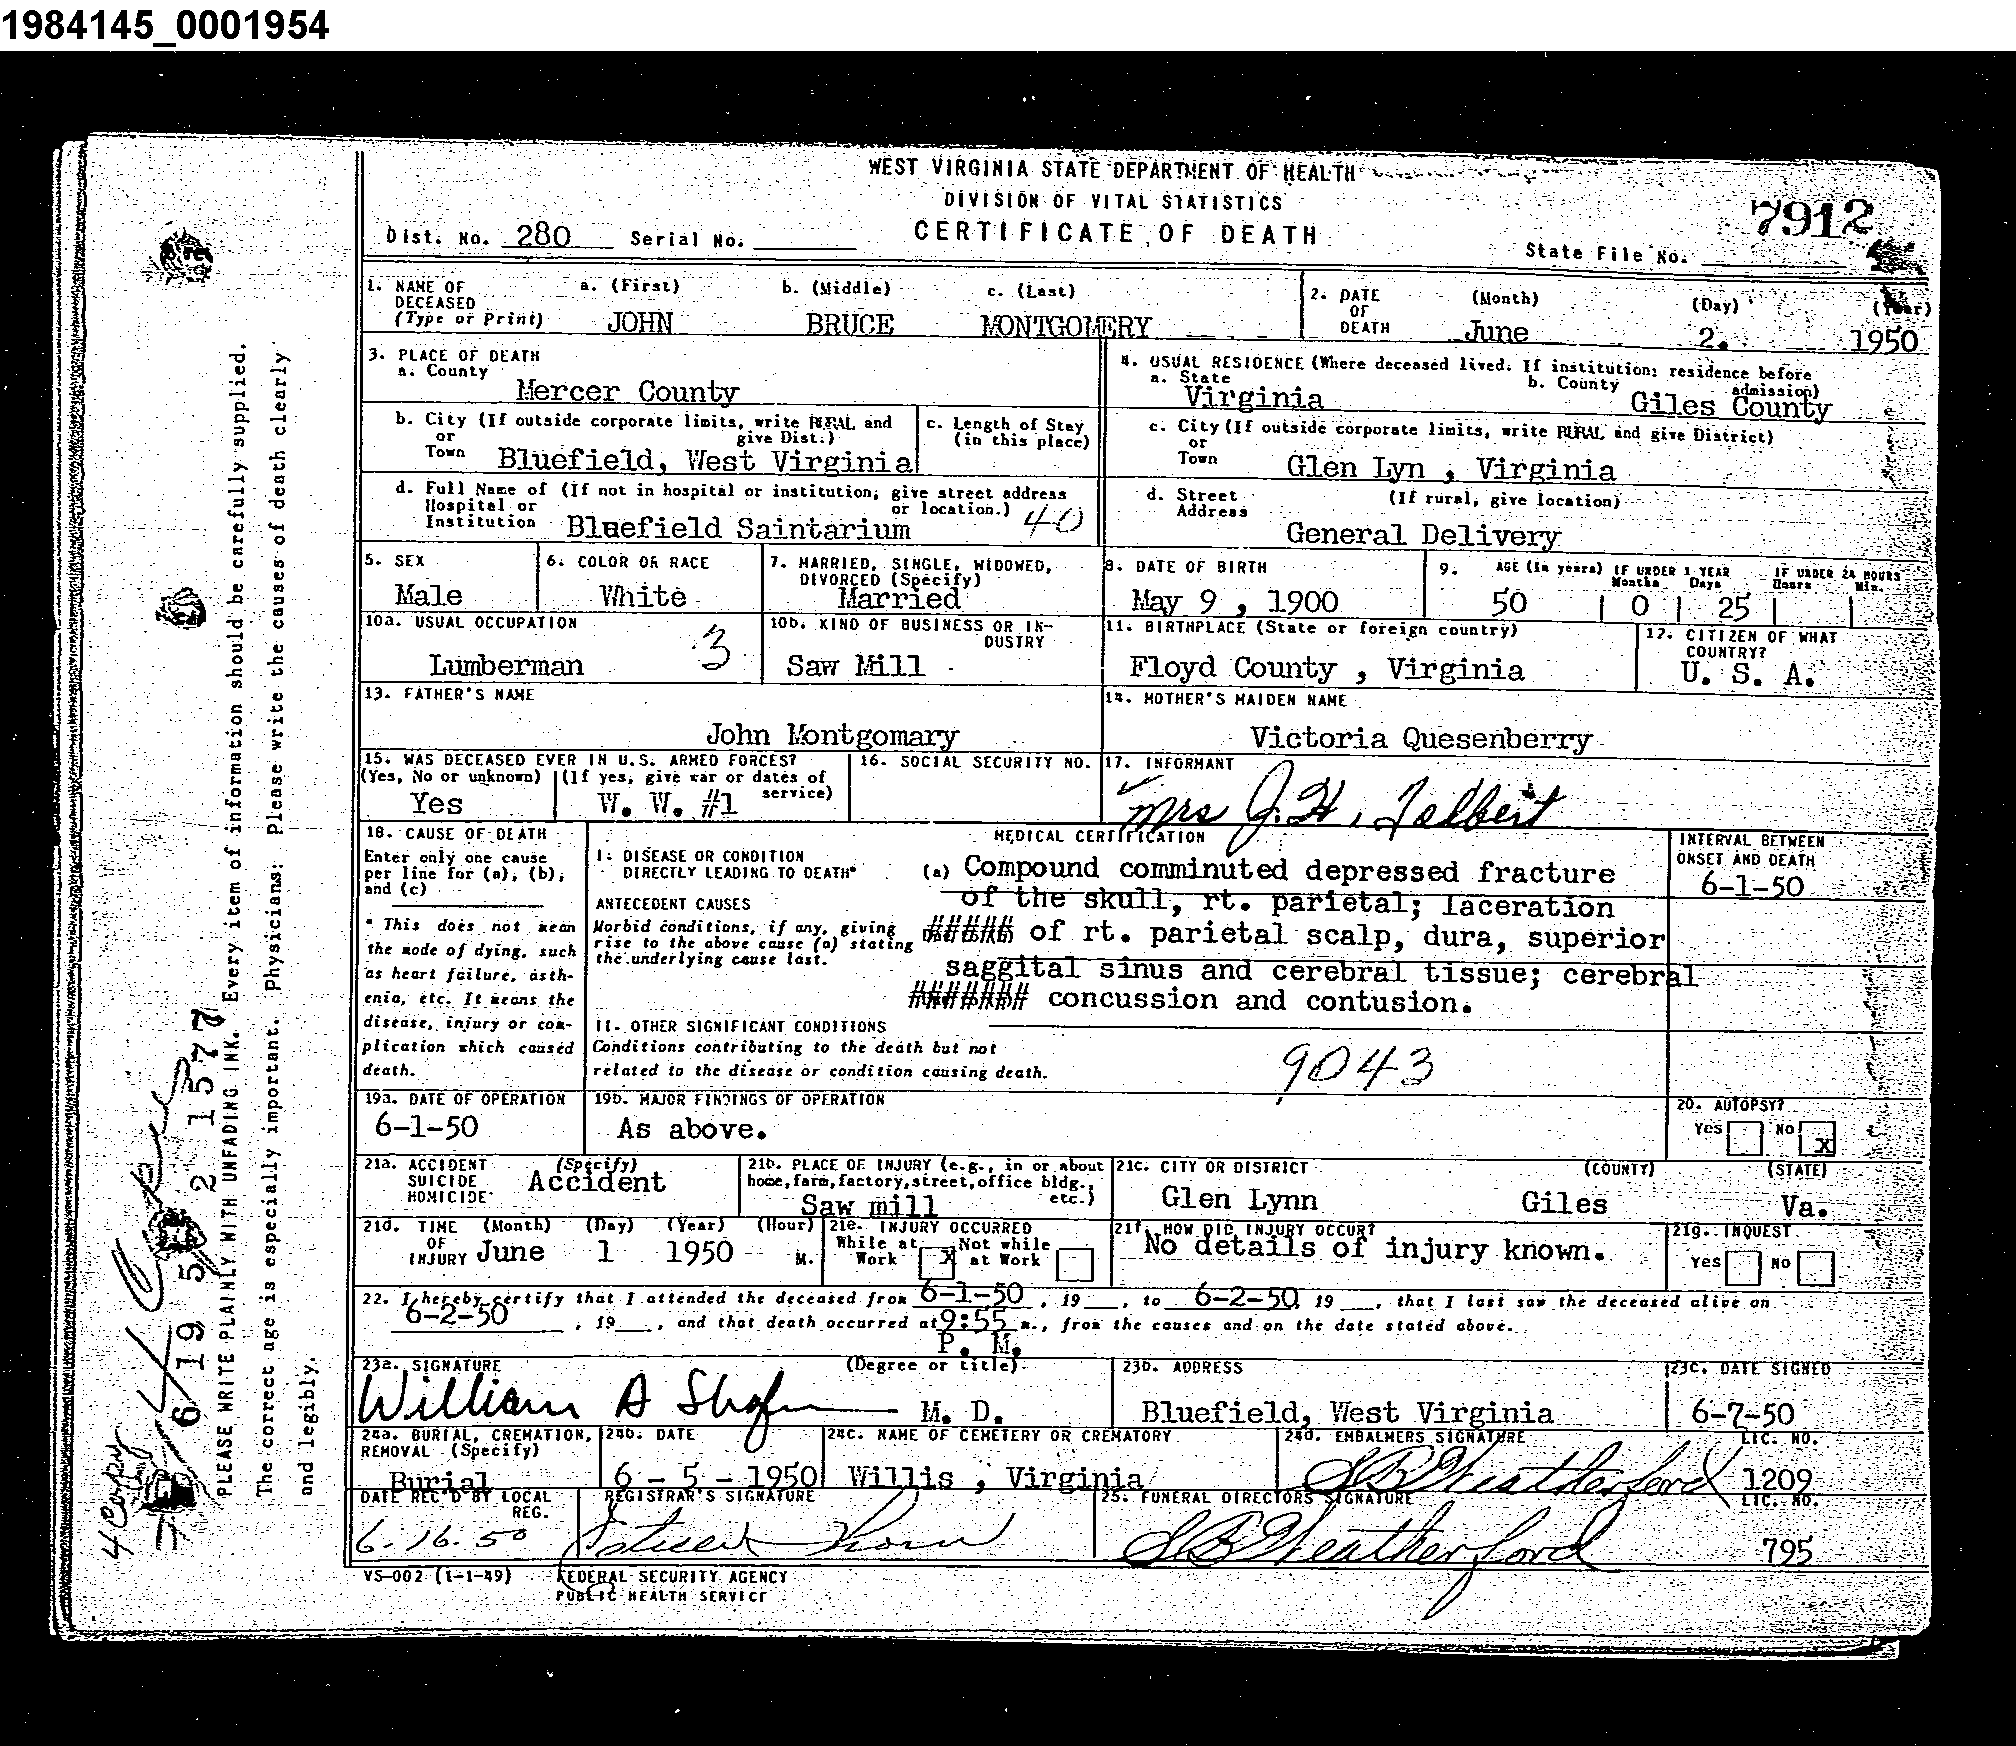 1984145_0001954
WEST VIRGINIA STATE DEPARTMENT OF HEALTH
DIVISION OF VITAL STATISTICS
7912
Dist. No. 280 Serial No. CERTIFICATE OF DEATH State File No.
1. NAME OF DECEASED (Type or Print) a. (First) JOHN b. (Middle) BRUCE c. (Last) MONTGOMERY
2. DATE OF DEATH (Month) June (Day) 2. (Year) 1950
3. PLACE OF DEATH
a. County Mercer County
b. City (If outside corporate limits, write RURAL and give Dist.)
or Town Bluefield, West Virginia
c. Length of Stay (in this place)
d. Full Name of Hospital or Institution (If not in hospital or institution, give street address or location.) 40
Bluefield Saintarium
4. USUAL RESIDENCE (Where deceased lived. If institution: residence before admission)
a. State Virginia b. County Giles County
c. City (If outside corporate limits, write RURAL and give District)
or Town Glen Lyn , Virginia
d. Street Address (If rural, give location)
General Delivery
5. SEX Male
6. COLOR OR RACE White
7. MARRIED, SINGLE, WIDOWED, DIVORCED (Specify) Married
8. DATE OF BIRTH May 9 , 1900
9. AGE (In years) 50 IF UNDER 1 YEAR Months 0 Days 25 IF UNDER 24 HOURS Hours Min.
10a. USUAL OCCUPATION Lumberman 3
10b. KIND OF BUSINESS OR INDUSTRY Saw Mill
11. BIRTHPLACE (State or foreign country) Floyd County , Virginia
12. CITIZEN OF WHAT COUNTRY? U. S. A.
13. FATHER'S NAME John Montgomary
14. MOTHER'S MAIDEN NAME Victoria Quesenberry
15. WAS DECEASED EVER IN U.S. ARMED FORCES?
(Yes, No or unknown) Yes (If yes, give war or dates of service) W. W. #1
16. SOCIAL SECURITY NO.
17. INFORMANT Mrs J. H. Talbert
18. CAUSE OF DEATH
Enter only one cause per line for (a), (b), and (c)
* This does not mean the mode of dying, such as heart failure, asthenia, etc. It means the disease, injury or complication which caused death.
MEDICAL CERTIFICATION
I. DISEASE OR CONDITION DIRECTLY LEADING TO DEATH* (a) Compound comminuted depressed fracture
of the skull, rt. parietal; laceration
ANTECEDENT CAUSES
Morbid conditions, if any, giving rise to the above cause (a) stating the underlying cause last.
##### of rt. parietal scalp, dura, superior
saggital sinus and cerebral tissue; cerebral
####### concussion and contusion.
INTERVAL BETWEEN ONSET AND DEATH
6-1-50
II. OTHER SIGNIFICANT CONDITIONS
Conditions contributing to the death but not related to the disease or condition causing death.
9043
19a. DATE OF OPERATION 6-1-50
19b. MAJOR FINDINGS OF OPERATION As above.
20. AUTOPSY? Yes No X
21a. ACCIDENT SUICIDE HOMICIDE (Specify) Accident
21b. PLACE OF INJURY (e.g., in or about home, farm, factory, street, office bldg., etc.) Saw mill
21c. CITY OR DISTRICT (COUNTY) (STATE)
Glen Lynn Giles Va.
21d. TIME OF INJURY (Month) June (Day) 1 (Year) 1950 (Hour) M.
21e. INJURY OCCURRED While at Work X Not while at Work
21f. HOW DID INJURY OCCUR? No details of injury known.
21g. INQUEST Yes No
22. I hereby certify that I attended the deceased from 6-1-50, 19__, to 6-2-50, 19__, that I last saw the deceased alive on
6-2-50, 19__, and that death occurred at 9:55 m., from the causes and on the date stated above.
P. M.
23a. SIGNATURE (Degree or title)
William A M. D.
23b. ADDRESS Bluefield, West Virginia
23c. DATE SIGNED 6-7-50
24a. BURIAL, CREMATION, REMOVAL (Specify) Burial
24b. DATE 6 - 5 - 1950
24c. NAME OF CEMETERY OR CREMATORY Willis , Virginia
24d. EMBALMERS SIGNATURE LIC. NO.
S B Weatherford 1209
DATE REC'D BY LOCAL REG. 6.16.50
REGISTRAR'S SIGNATURE
25. FUNERAL DIRECTORS SIGNATURE LIC. NO.
S B Weatherford 795
VS-002 (1-1-49) FEDERAL SECURITY AGENCY
PUBLIC HEALTH SERVICE
PLEASE WRITE PLAINLY WITH UNFADING INK. Every item of information should be carefully supplied.
The correct age is especially important. Physicians: Please write the causes of death clearly
and legibly.
6 19 5 2 157
4 Copy